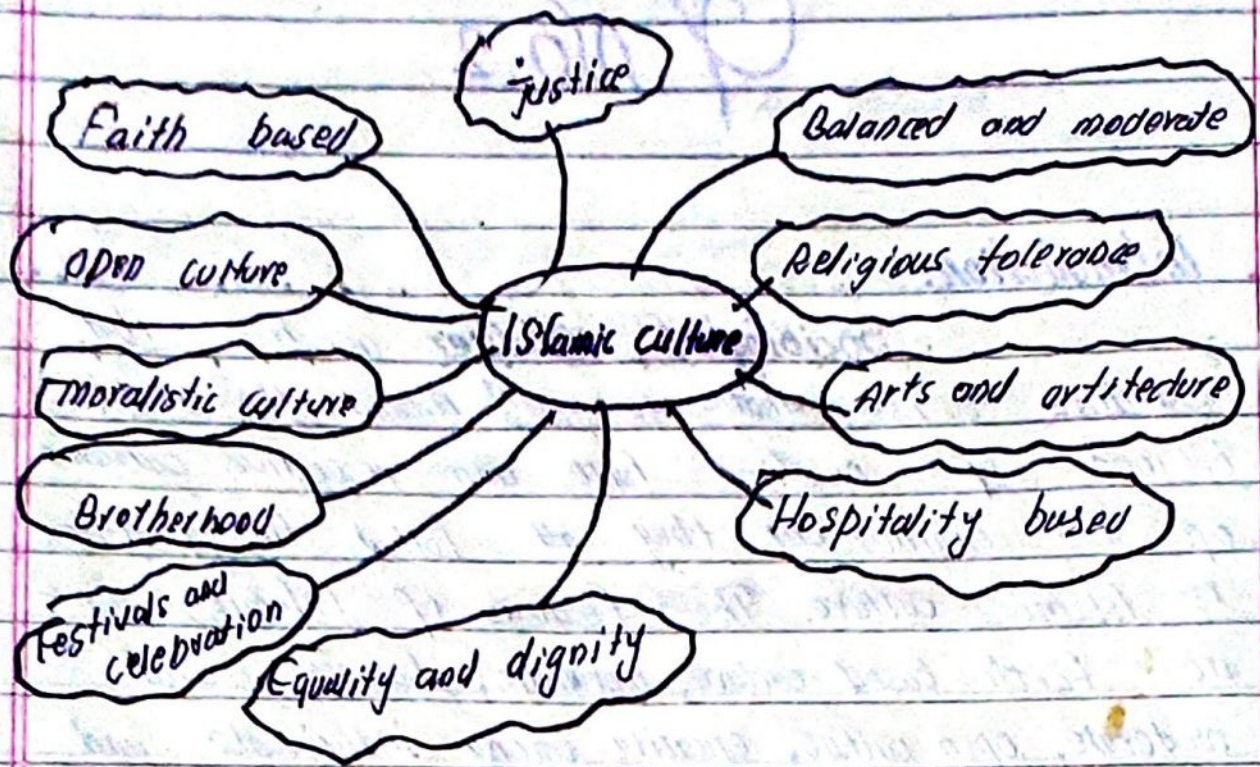 justice
Faith based
Balanced and moderate
open culture
Religious tolerance
Islamic culture
Moralistic culture
Arts and artitecture
Brotherhood
Hospitality based
Festivals and
celebration
Equality and dignity